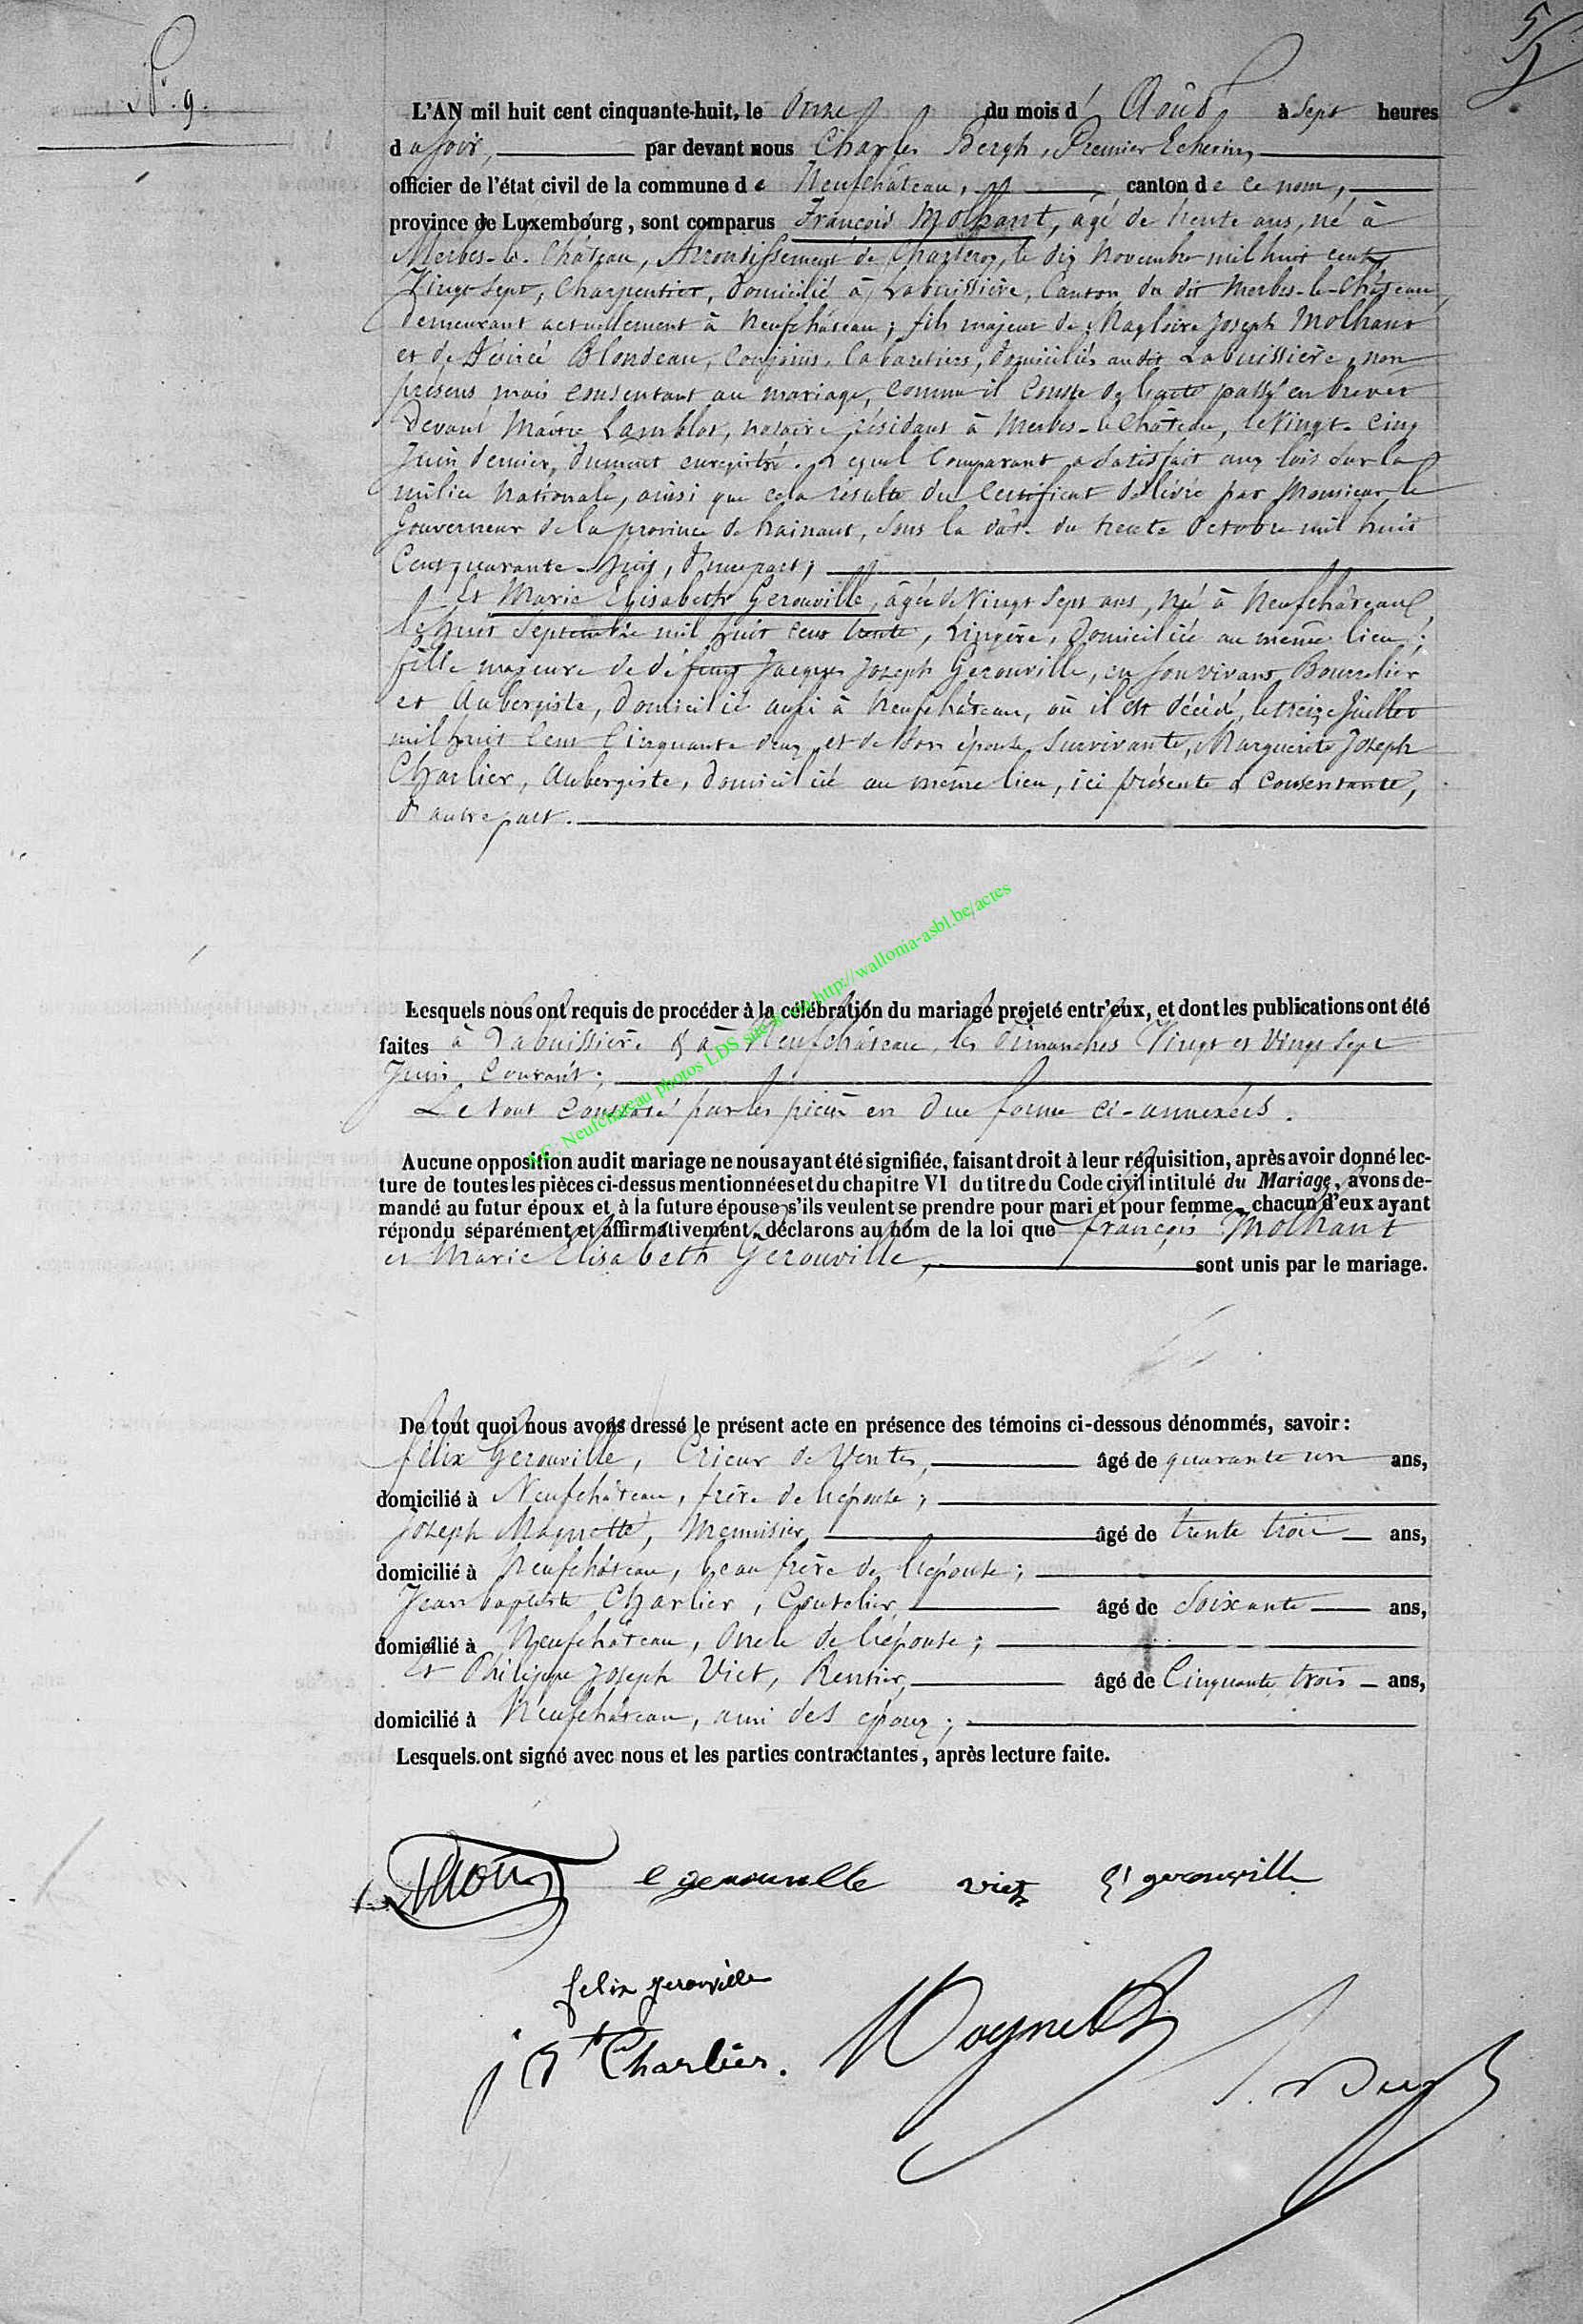 N° 9.
5
L'AN mil huit cent cinquante-huit, le Onze du mois d' Août à Sept heures
du soir, par devant nous Charles Bergh, Premier Echevin,
officier de l'état civil de la commune de Neufchâteau, canton de ce nom,
province de Luxembourg, sont comparus François Molhant, âgé de trente ans, né à
Merbes-le-Château, Arrondissement de Charleroy, le dix Novembre mil huit cent
Vingt Sept, Charpentier, domicilié à Labuissière, Canton du dit Merbes-le-Château,
demeurant actuellement à Neufchâteau; fils majeur de Magloire Joseph Molhant
et de Désirée Blondeau, Conjoints, Cabaretiers, domiciliés audit Labuissière, non
présens mais consentant au mariage, comme il Conste de l'acte passé en brevet
Devant Maître Lamblot, notaire résidant à Merbes-le Château, le Vingt-Cinq
Juin dernier, dument enregistré. Lequel Comparant a Satisfait aux lois Sur la
milice Nationale, ainsi que cela résulte du Certificat délivré par Monsieur le
Gouverneur de la province de hainaut, Sous la date du trente Octobre mil huit
Cent quarante-huit, d'une part;
Et Marie Elisabeth Gerouville, âgée de Vingt Sept ans, Née à Neufchâteau,
le huit Septembre mil huit cent trente, Lingère, domiciliée au même lieu;
fille majeure de défunt Jacques Joseph Gerouville, en son vivant Bourrelier
et Aubergiste, domicilié aussi à Neufchâteau, où il est décédé, le treize Juillet
mil huit Cent Cinquante deux, et de Son épouse Survivante, Marguerite Joseph
Charlier, Aubergiste, domiciliée au même lieu, ici présente & Consentante,
d'autre part.
Lesquels nous ont requis de procéder à la célébration du mariage projeté entr'eux, et dont les publications ont été
faites à Labuissière & à Neufchâteau, les Dimanches Vingt et Vingt Sept
Juin Courant;
Le tout Constaté par les pièces en due forme ci-annexées.
A.C. Neufchateau photos LDS site http://wallonia-asbl.be/actes
Aucune opposition audit mariage ne nous ayant été signifiée, faisant droit à leur réquisition, après avoir donné lec-
ture de toutes les pièces ci-dessus mentionnées et du chapitre VI du titre du Code civil intitulé du Mariage, avons de-
mandé au futur époux et à la future épouse s'ils veulent se prendre pour mari et pour femme, chacun d'eux ayant
répondu séparément et affirmativement, déclarons au nom de la loi que François Molhant
et Marie Elisabeth Gerouville, sont unis par le mariage.
De tout quoi nous avons dressé le présent acte en présence des témoins ci-dessous dénommés, savoir :
félix Gerouville, Crieur de Ventes, âgé de quarante un ans,
domicilié à Neufchâteau, frère de l'épouse;
Joseph Magnette, Menuisier, âgé de trente trois ans,
domicilié à Neufchâteau, beau frère de l'épouse;
Jean baptiste Charlier, Coutelier, âgé de Soixante ans,
domicilié à Neufchâteau, Oncle de l'épouse;
Et Philippe Joseph Viet, Rentier, âgé de Cinquante trois ans,
domicilié à Neufchâteau, ami des époux;
Lesquels ont signé avec nous et les parties contractantes, après lecture faite.
e gerouville viet gerouville
felix gerouville
j Bte Charlier. Magnette